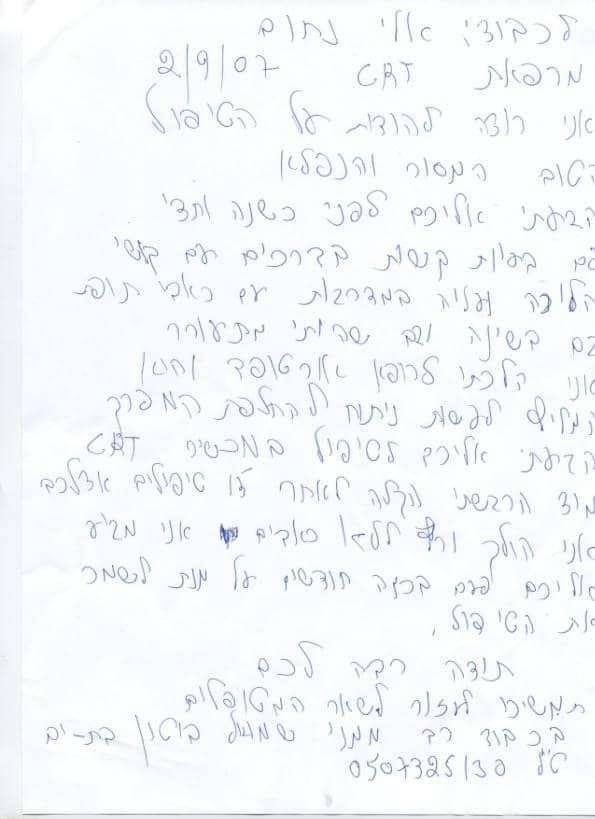 לכבוד: אלי נחום
מרפאת CRT 2/9/07
אני רוצה להודות על הטיפול
הטוב המסור והנפלא
הגעתי אליכם לפני כשנה וחצי
עם בעיות קשות בברכיים עם קושי
הליכה ועליה במדרגות עם כאבי תופת
גם בשינה וגם שהותי מתעורר
אני הלכתי לרופא אורטופד והוא
המליץ לעשות ניתוח להחלפת המפרק
הגעתי אליכם לטיפול במכשיר CRT
מיד הרגשתי הקלה לאחר טיפולים אצלכם
אני הולך ללא כאבים אני מגיע
אליכם פעם בכמה חודשים על מנת לשמר
את הטיפול,
תודה רבה לכם
תמשיכו לעזור לשאר המטופלים
בכבוד רב ממני שמואל בוטון בת-ים
טל 0507325130